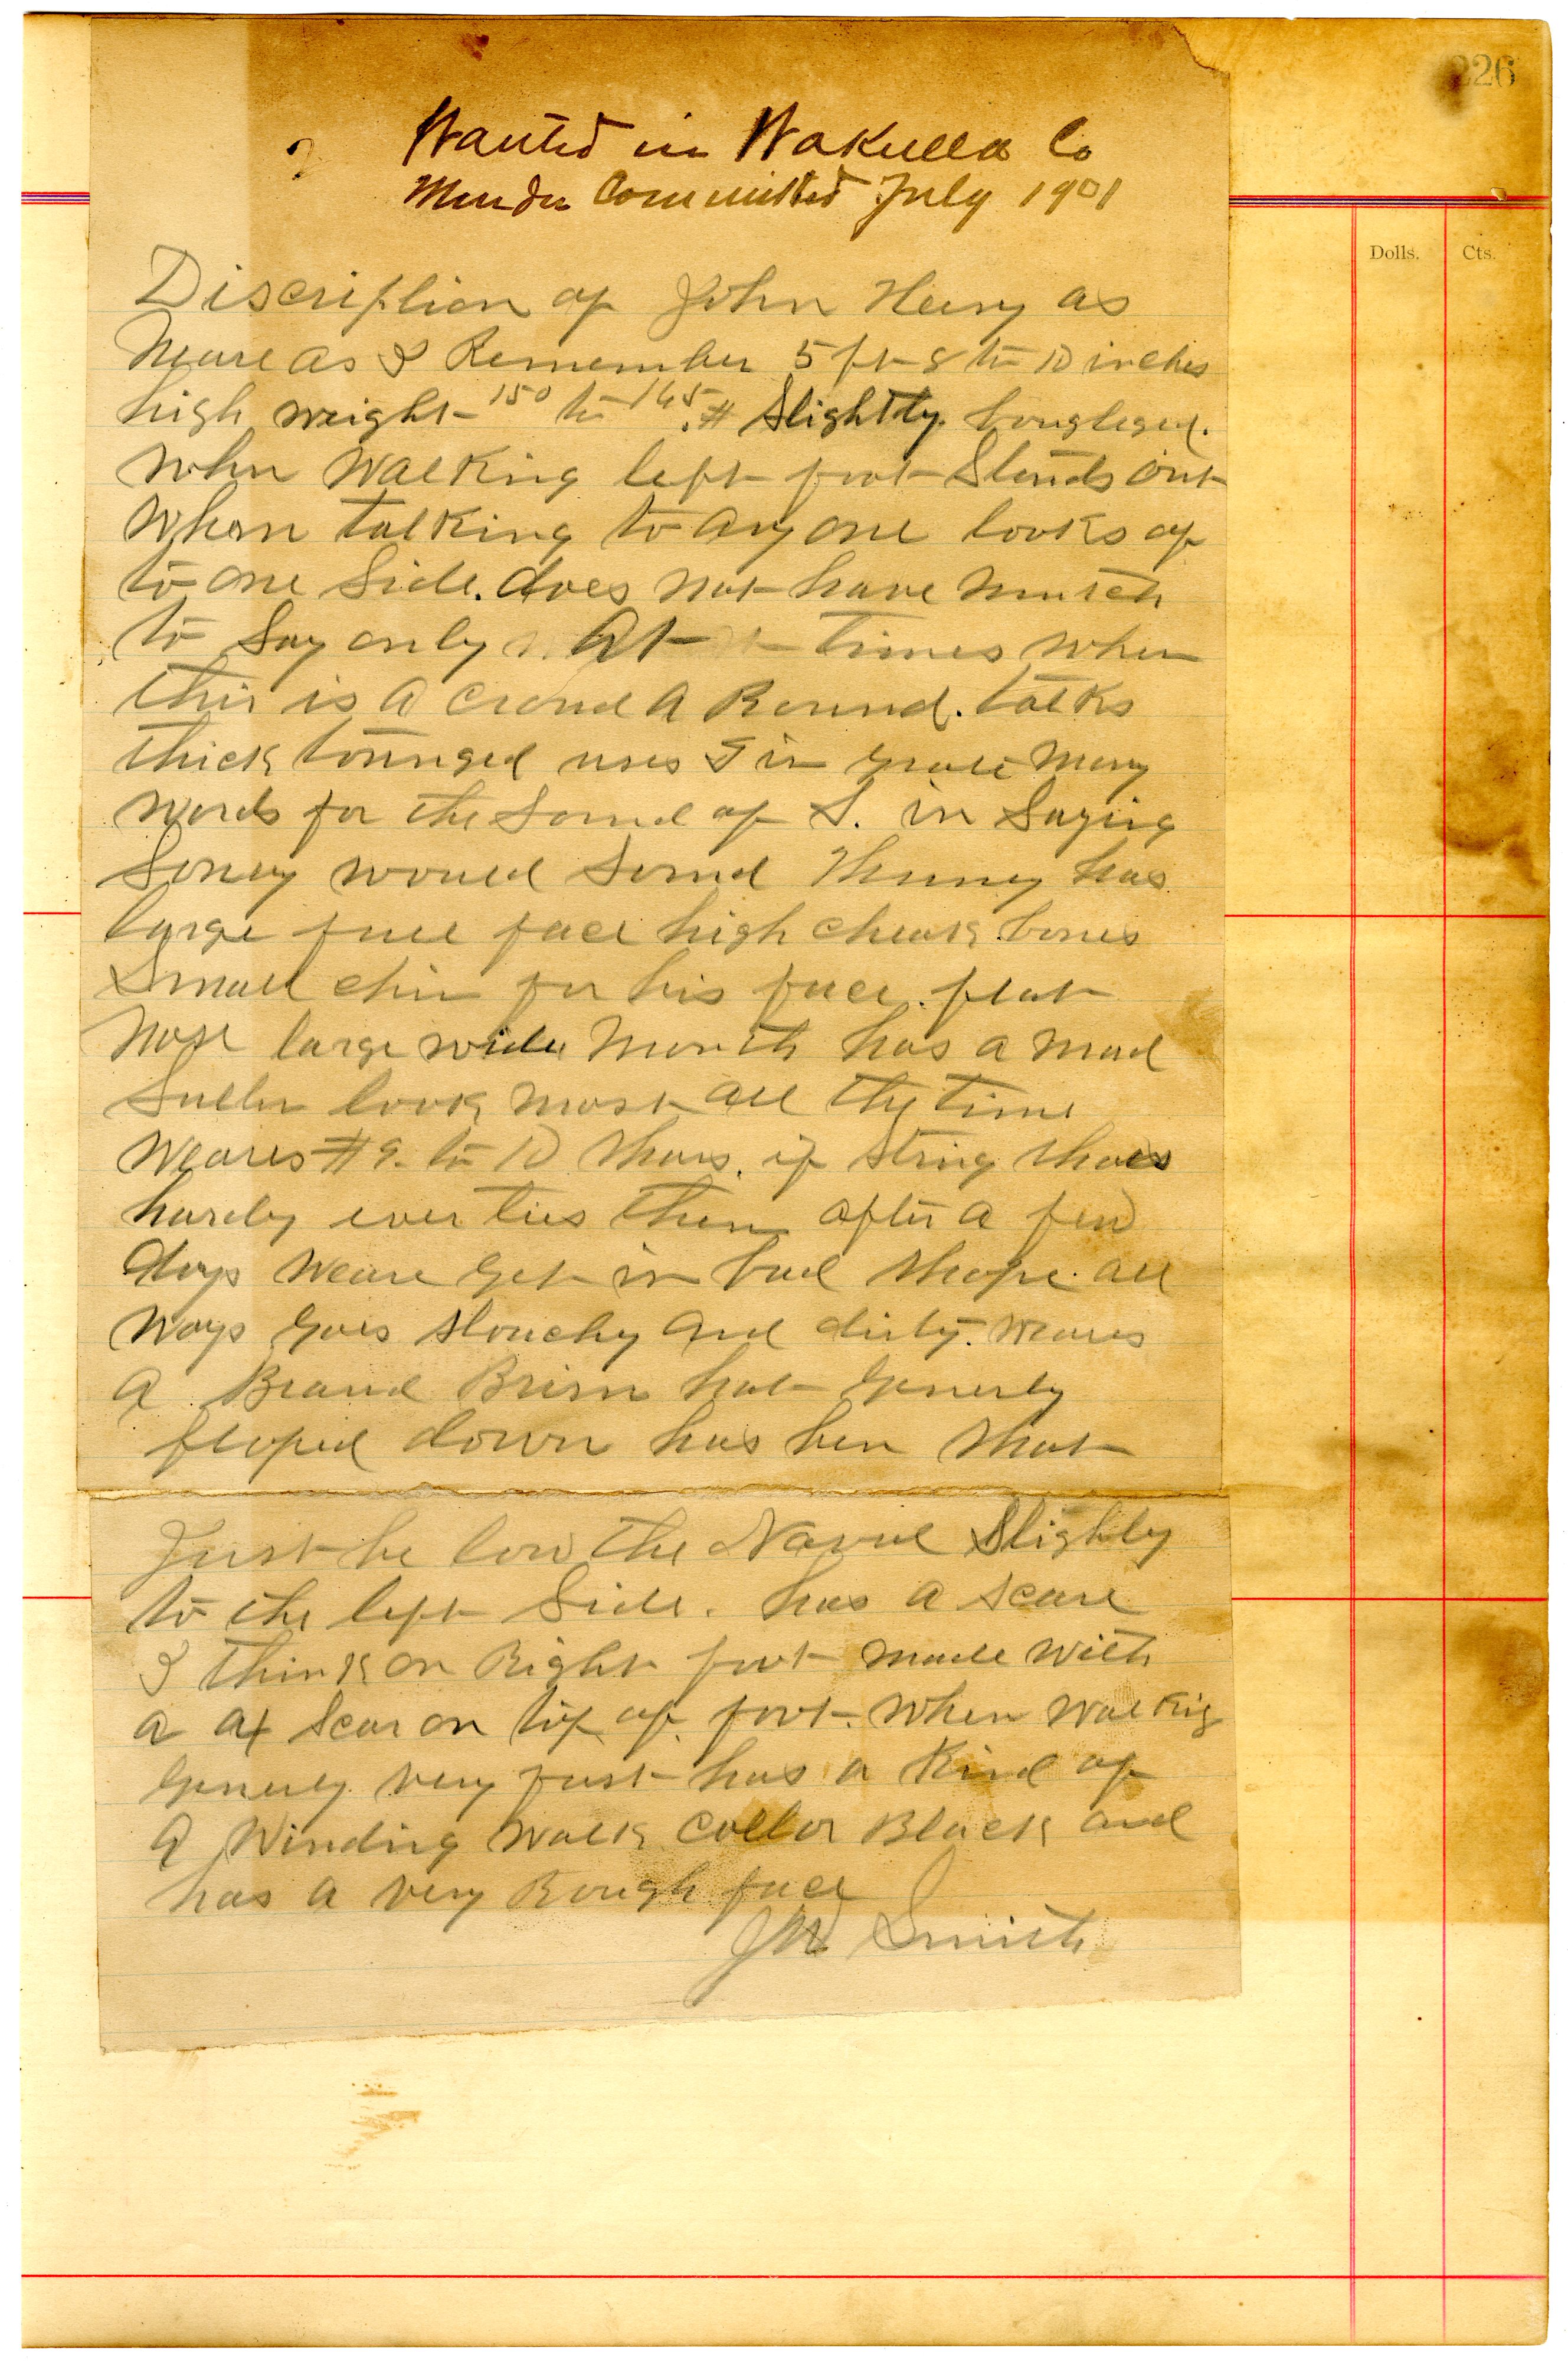 226
Wanted in Wakulla Co
Murder Committed July 1901
Dolls. Cts.
Discription of John Henry as
Neare as I Remember 5 ft 8 to 10 inches
high weight 150 to 165 # Slightly bougleged.
When Walking left foot Stands out
When talking to any one looks of
to one Side. does not have mutch
to Say only At times when
thir is a Croud a Round. talks
thick tounged uses T in graie many
words for the Sound of S. in Saying
Soney would Sound Thuney has
large full face high cheak bones
Small chin for his face. flat
Nose large wide Mouth has a mad
Sullen look most all the time
Weares # 9. to 10 Shoes. if String Shoes
hardly ever ties them after a few
days weare get in bad Shape. all
ways goes slouchy and dirty. weares
a Braud Brim hat generly
floped down has ben Shot
Just be low the Navul Slightly
to the left Side. has a scare
I think on Right foot made with
a ax Scar on top of foot. When Walking
generly very fast has a Kind of
a Winding walk Coller Black and
has a very Rough face
JW Smith